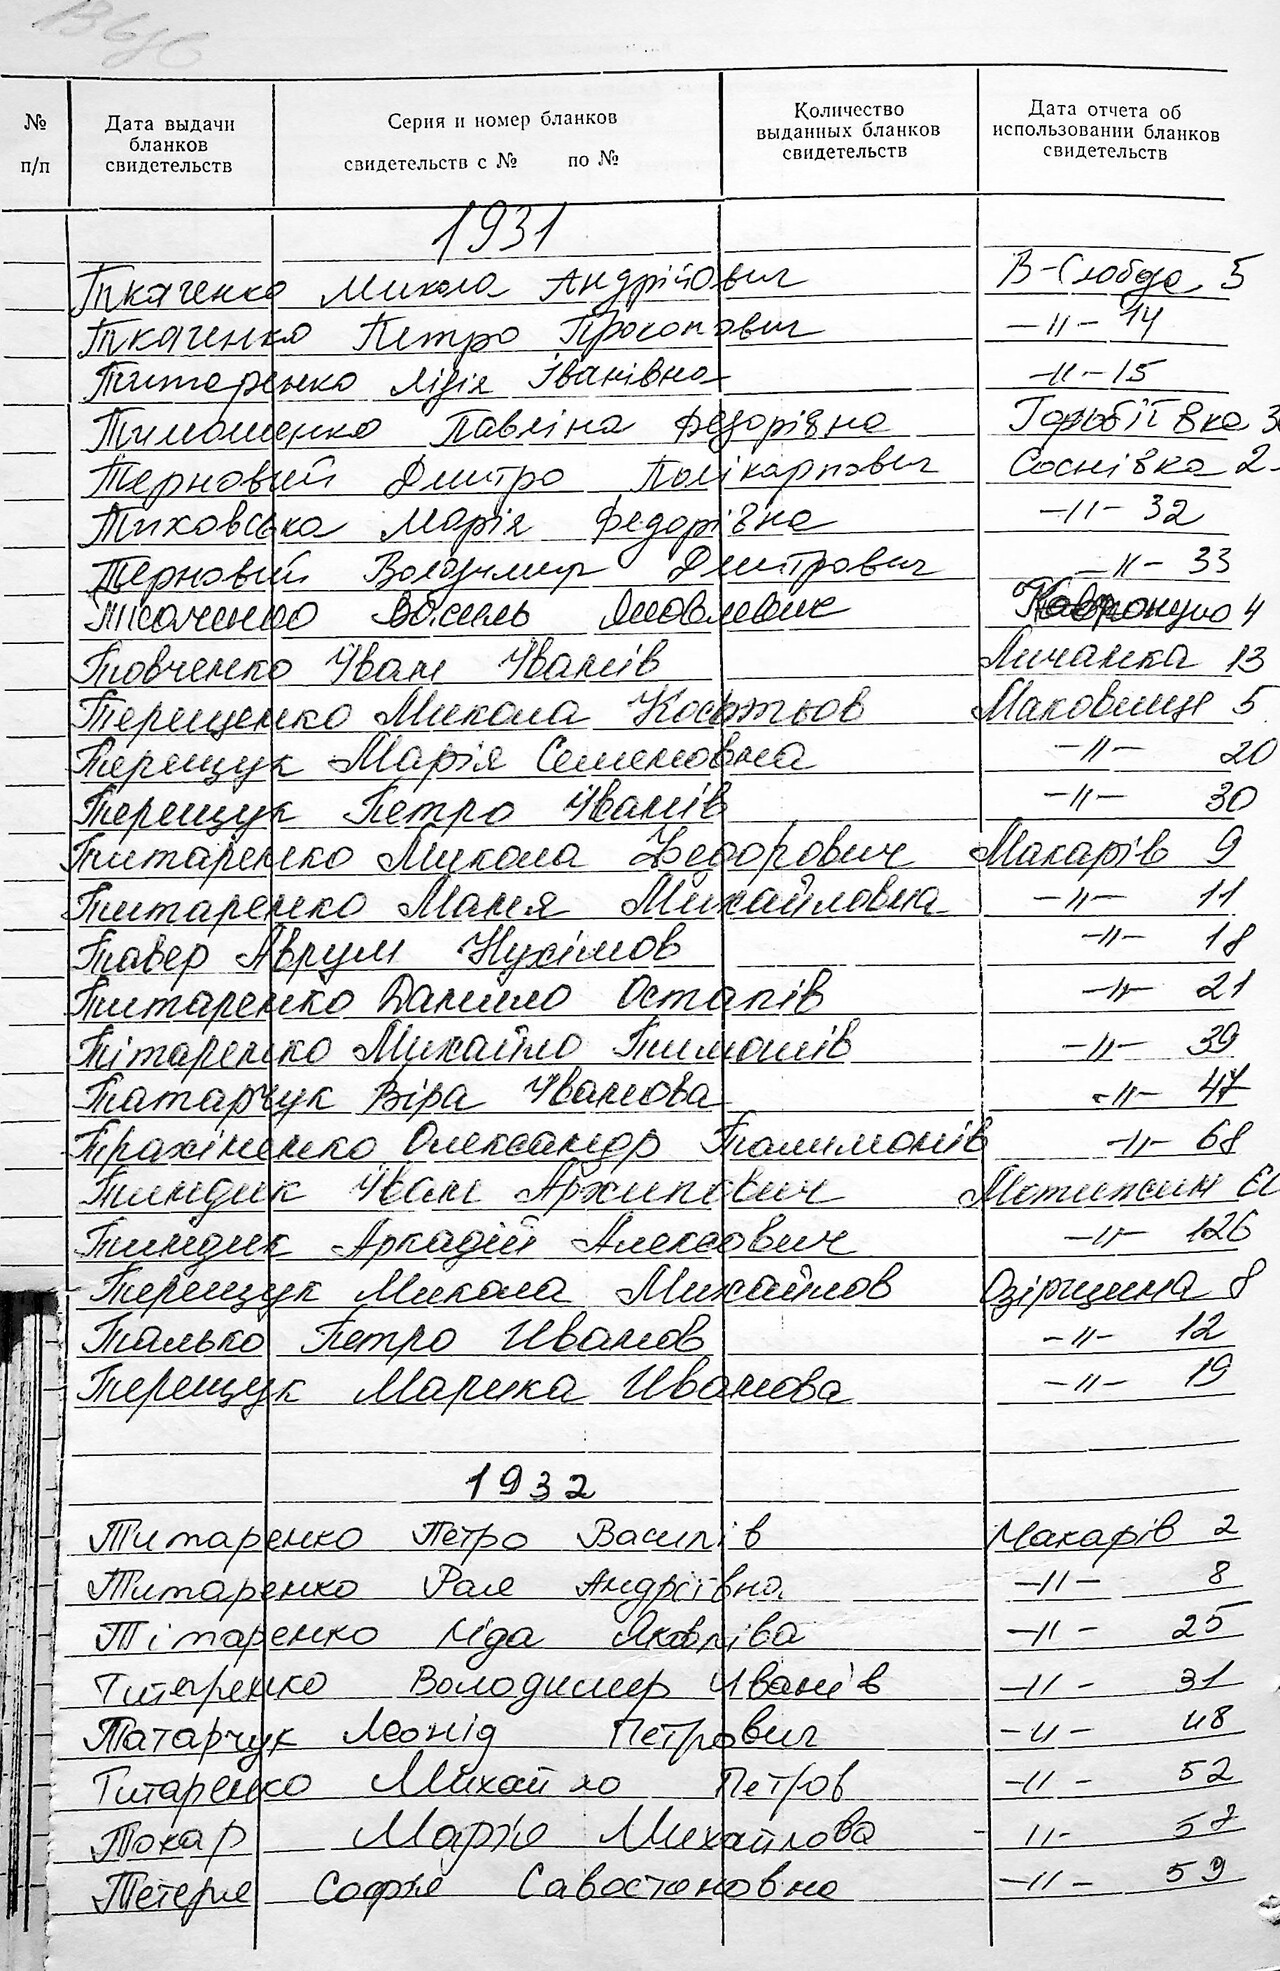 № п/п
Дата выдачи бланков свидетельств
Серия и номер бланков свидетельств с № по №
Количество выданных бланков свидетельств
Дата отчета об использовании бланков свидетельств
1931
Ткаченко Микола Андрійович В-Слобода 5
Ткаченко Петро Прокопович -〃- 14
Титаренко Лідія Іванівна -〃- 15
Тимошенко Павліна Федорівна
Терновий Дмитро Полікарпович Соснівка 2
Тиховська Марія Федорівна -〃- 32
Терновий Володимир Дмитрович -〃- 33
4
Товченко Іван Іванів Личанка 13
Терещенко Микола Костьов Маковище 5
Терещук Марія Семеновна -〃- 20
Терещук Петро Іванів -〃- 30
Титаренко Микола Федорович Макарів 9
Титаренко Маня Михайловна -〃- 11
Тавер Аврум Нухімов -〃- 18
Титаренко Данило Остапів -〃- 21
Тітаренко Михайло Тимошів -〃- 39
Татарчук Віра Іванова -〃- 47
Трахіненко Олександр -〃- 68
Тиндик Іван Архипович Мотижин
Тиндик Аркадій Алексович -〃- 126
Терещук Микола Михайлов Озірщина 8
Талько Петро Иванов -〃- 12
Терещук Марика Иванова -〃- 19
1932
Титаренко Петро Василів Макарів 2
Титаренко Рая Андріївна -〃- 8
Тітаренко Ліда Яковліва -〃- 25
Титаренко Володимер Іванів -〃- 31
Татарчук Леонід Петрович -〃- 48
Титаренко Михайло Петров -〃- 52
Токар Марія Михайлова -〃- 57
Тетеря Софія Савостановна -〃- 59